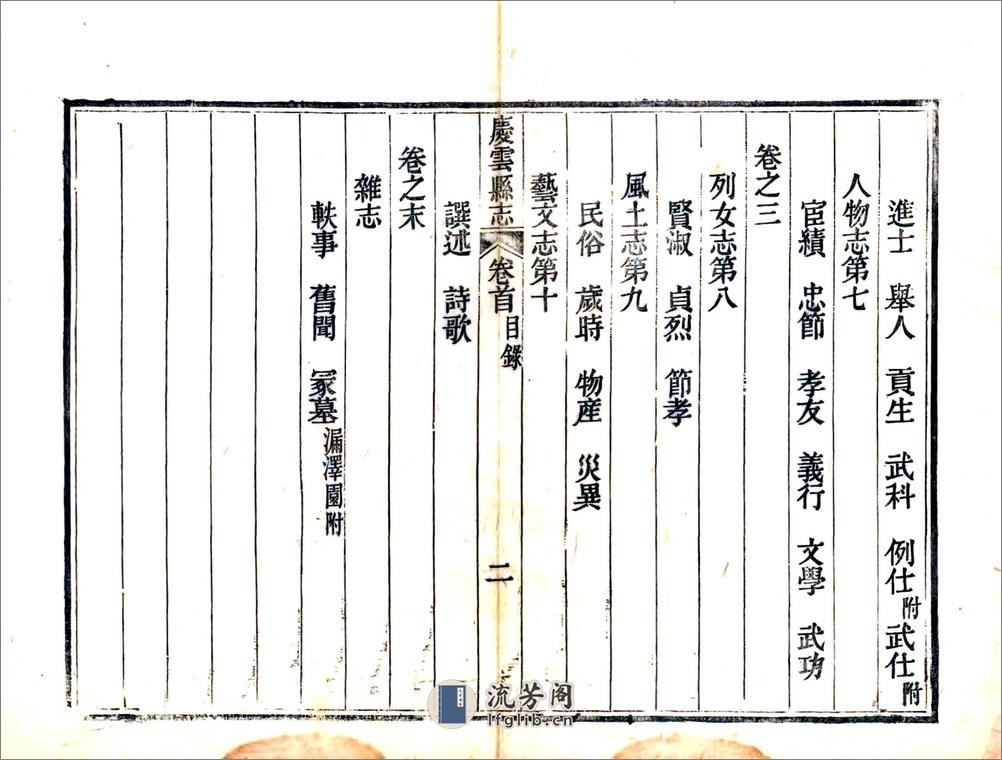 進士 舉人 貢生 武科 例仕附 武仕附
人物志第七
宦績 忠節 孝友 義行 文學 武功
卷之三
列女志第八
賢淑 貞烈 節孝
風土志第九
民俗 歲時 物産 災異
藝文志第十
慶雲縣志 卷首 目錄 二
譔述 詩歌
卷之末
雜志
軼事 舊聞 冢墓漏澤園附
流芳阁
lfglib.cn